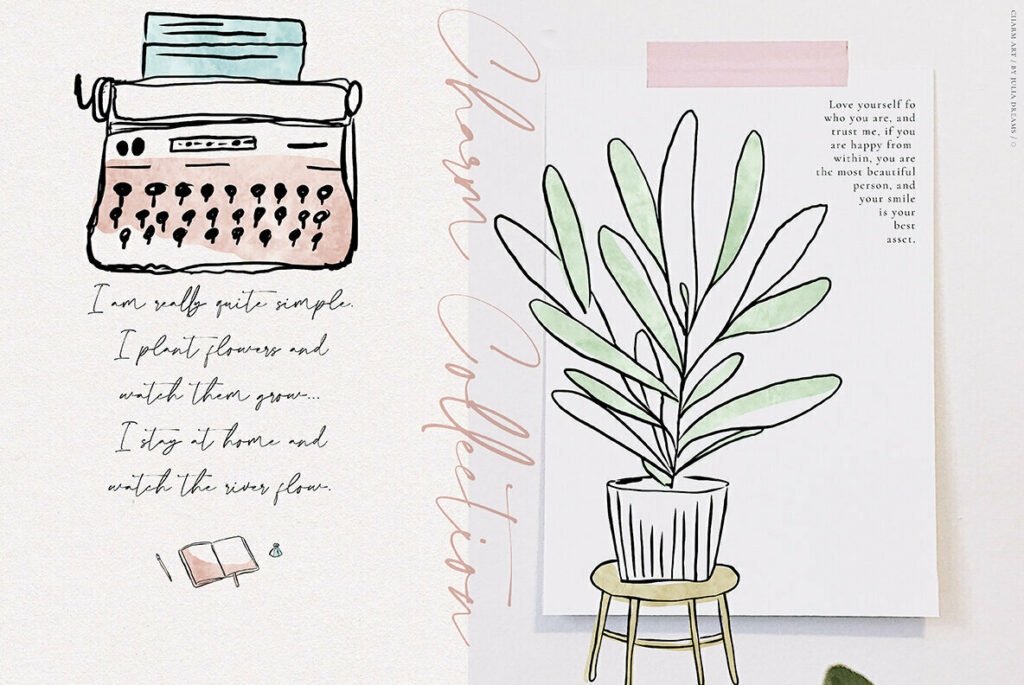 I am really quite simple.
I plant flowers and
watch them grow...
I stay at home and
watch the river flow.
Charm Collection
Love yourself fo
who you are, and
trust me, if you
are happy from
within, you are
the most beautiful
person, and
your smile
is your
best
asset.
CHARM ART / BY JULIA DREAMS / ©